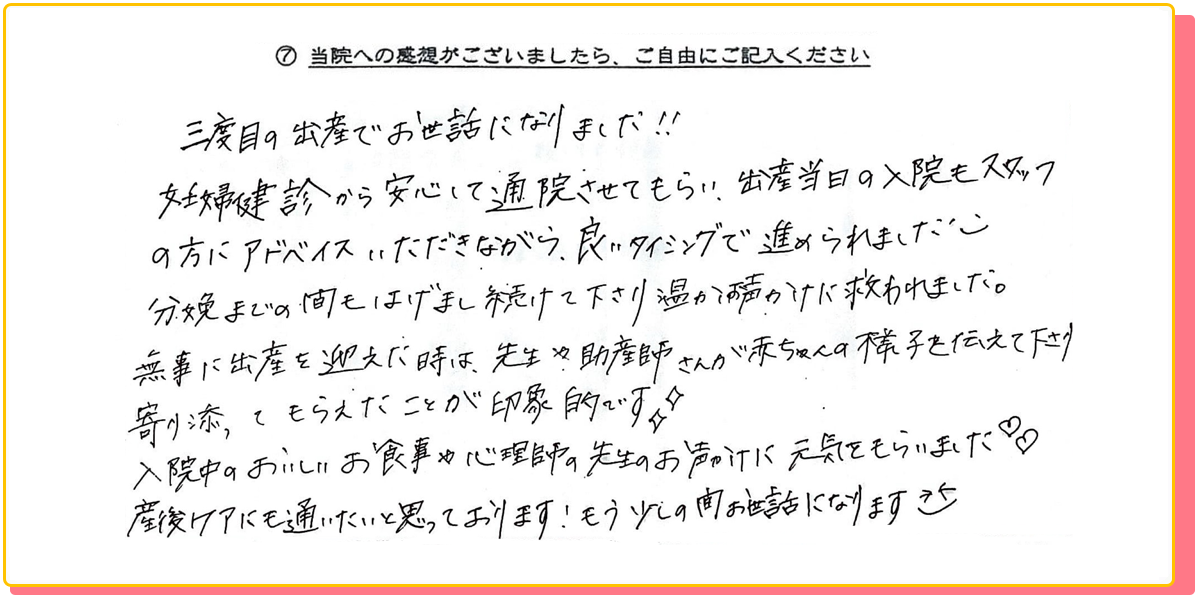 ⑦ 当院への感想がございましたら、ご自由にご記入ください
三度目の出産でお世話になりました!!
妊婦健診から安心して通院させてもらい、出産当日の入院もスタッフ
の方にアドバイスいただきながら、良いタイミングで進められました
分娩までの間もはげまし続けて下さり温かい声かけに救われました。
無事に出産を迎えた時は、先生や助産師さんが赤ちゃんの様子を伝えて下さり
寄り添ってもらえたことが印象的です
入院中のおいしいお食事や心理師の先生のお声かけに元気をもらいました♡♡
産後ケアにも通いたいと思っております!もう少しの間お世話になります